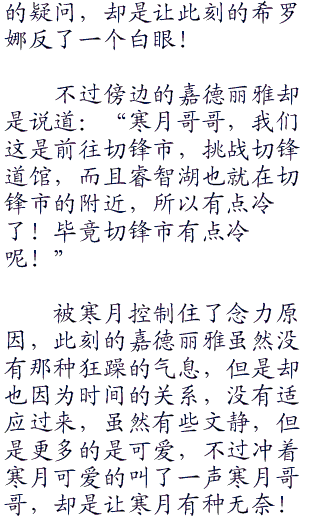 的疑问，却是让此刻的希罗
娜反了一个白眼！
不过傍边的嘉德丽雅却
是说道：“寒月哥哥，我们
这是前往切锋市，挑战切锋
道馆，而且睿智湖也就在切
锋市的附近，所以有点冷
了！毕竟切锋市有点冷
呢！”
被寒月控制住了念力原
因，此刻的嘉德丽雅虽然没
有那种狂躁的气息，但是却
也因为时间的关系，没有适
应过来，虽然有些文静，但
是更多的是可爱，不过冲着
寒月可爱的叫了一声寒月哥
哥，却是让寒月有种无奈！